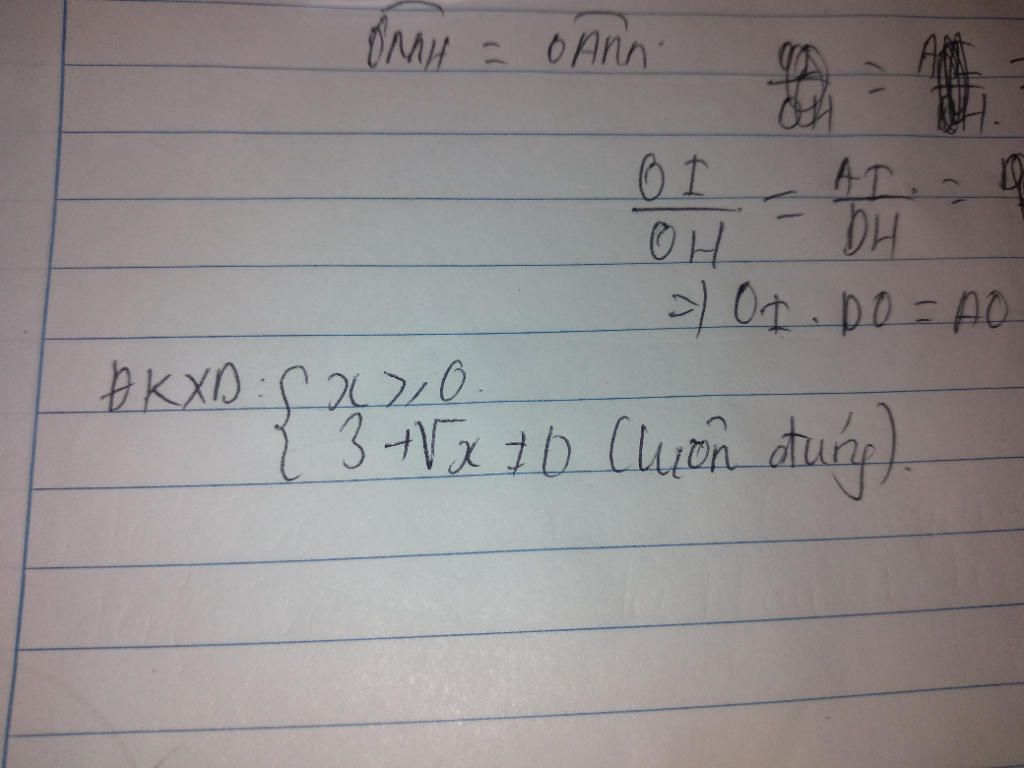 OMH = OAM.
OI/OH = AI/DH =
=> OI . DO = AO
ĐKXD: { x ≥ 0.
3 + √x ≠ 0 (luôn đúng).